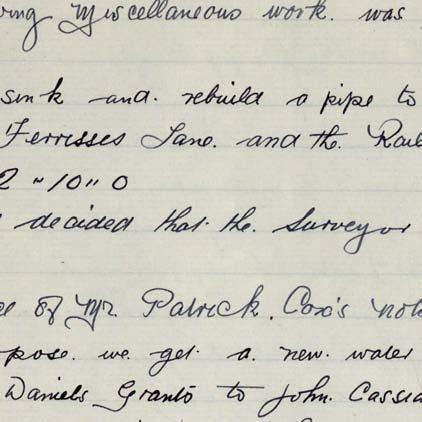 ring Miscellaneous work. was
sink and. rebuild a pipe to
Ferrisses Lane. and the. Rail
2 "10" 0
decided that. the. Surveyor
of Mr. Patrick. Cox's not
pose. we. get. a. new. water
Daniels Granto to John. Cassia